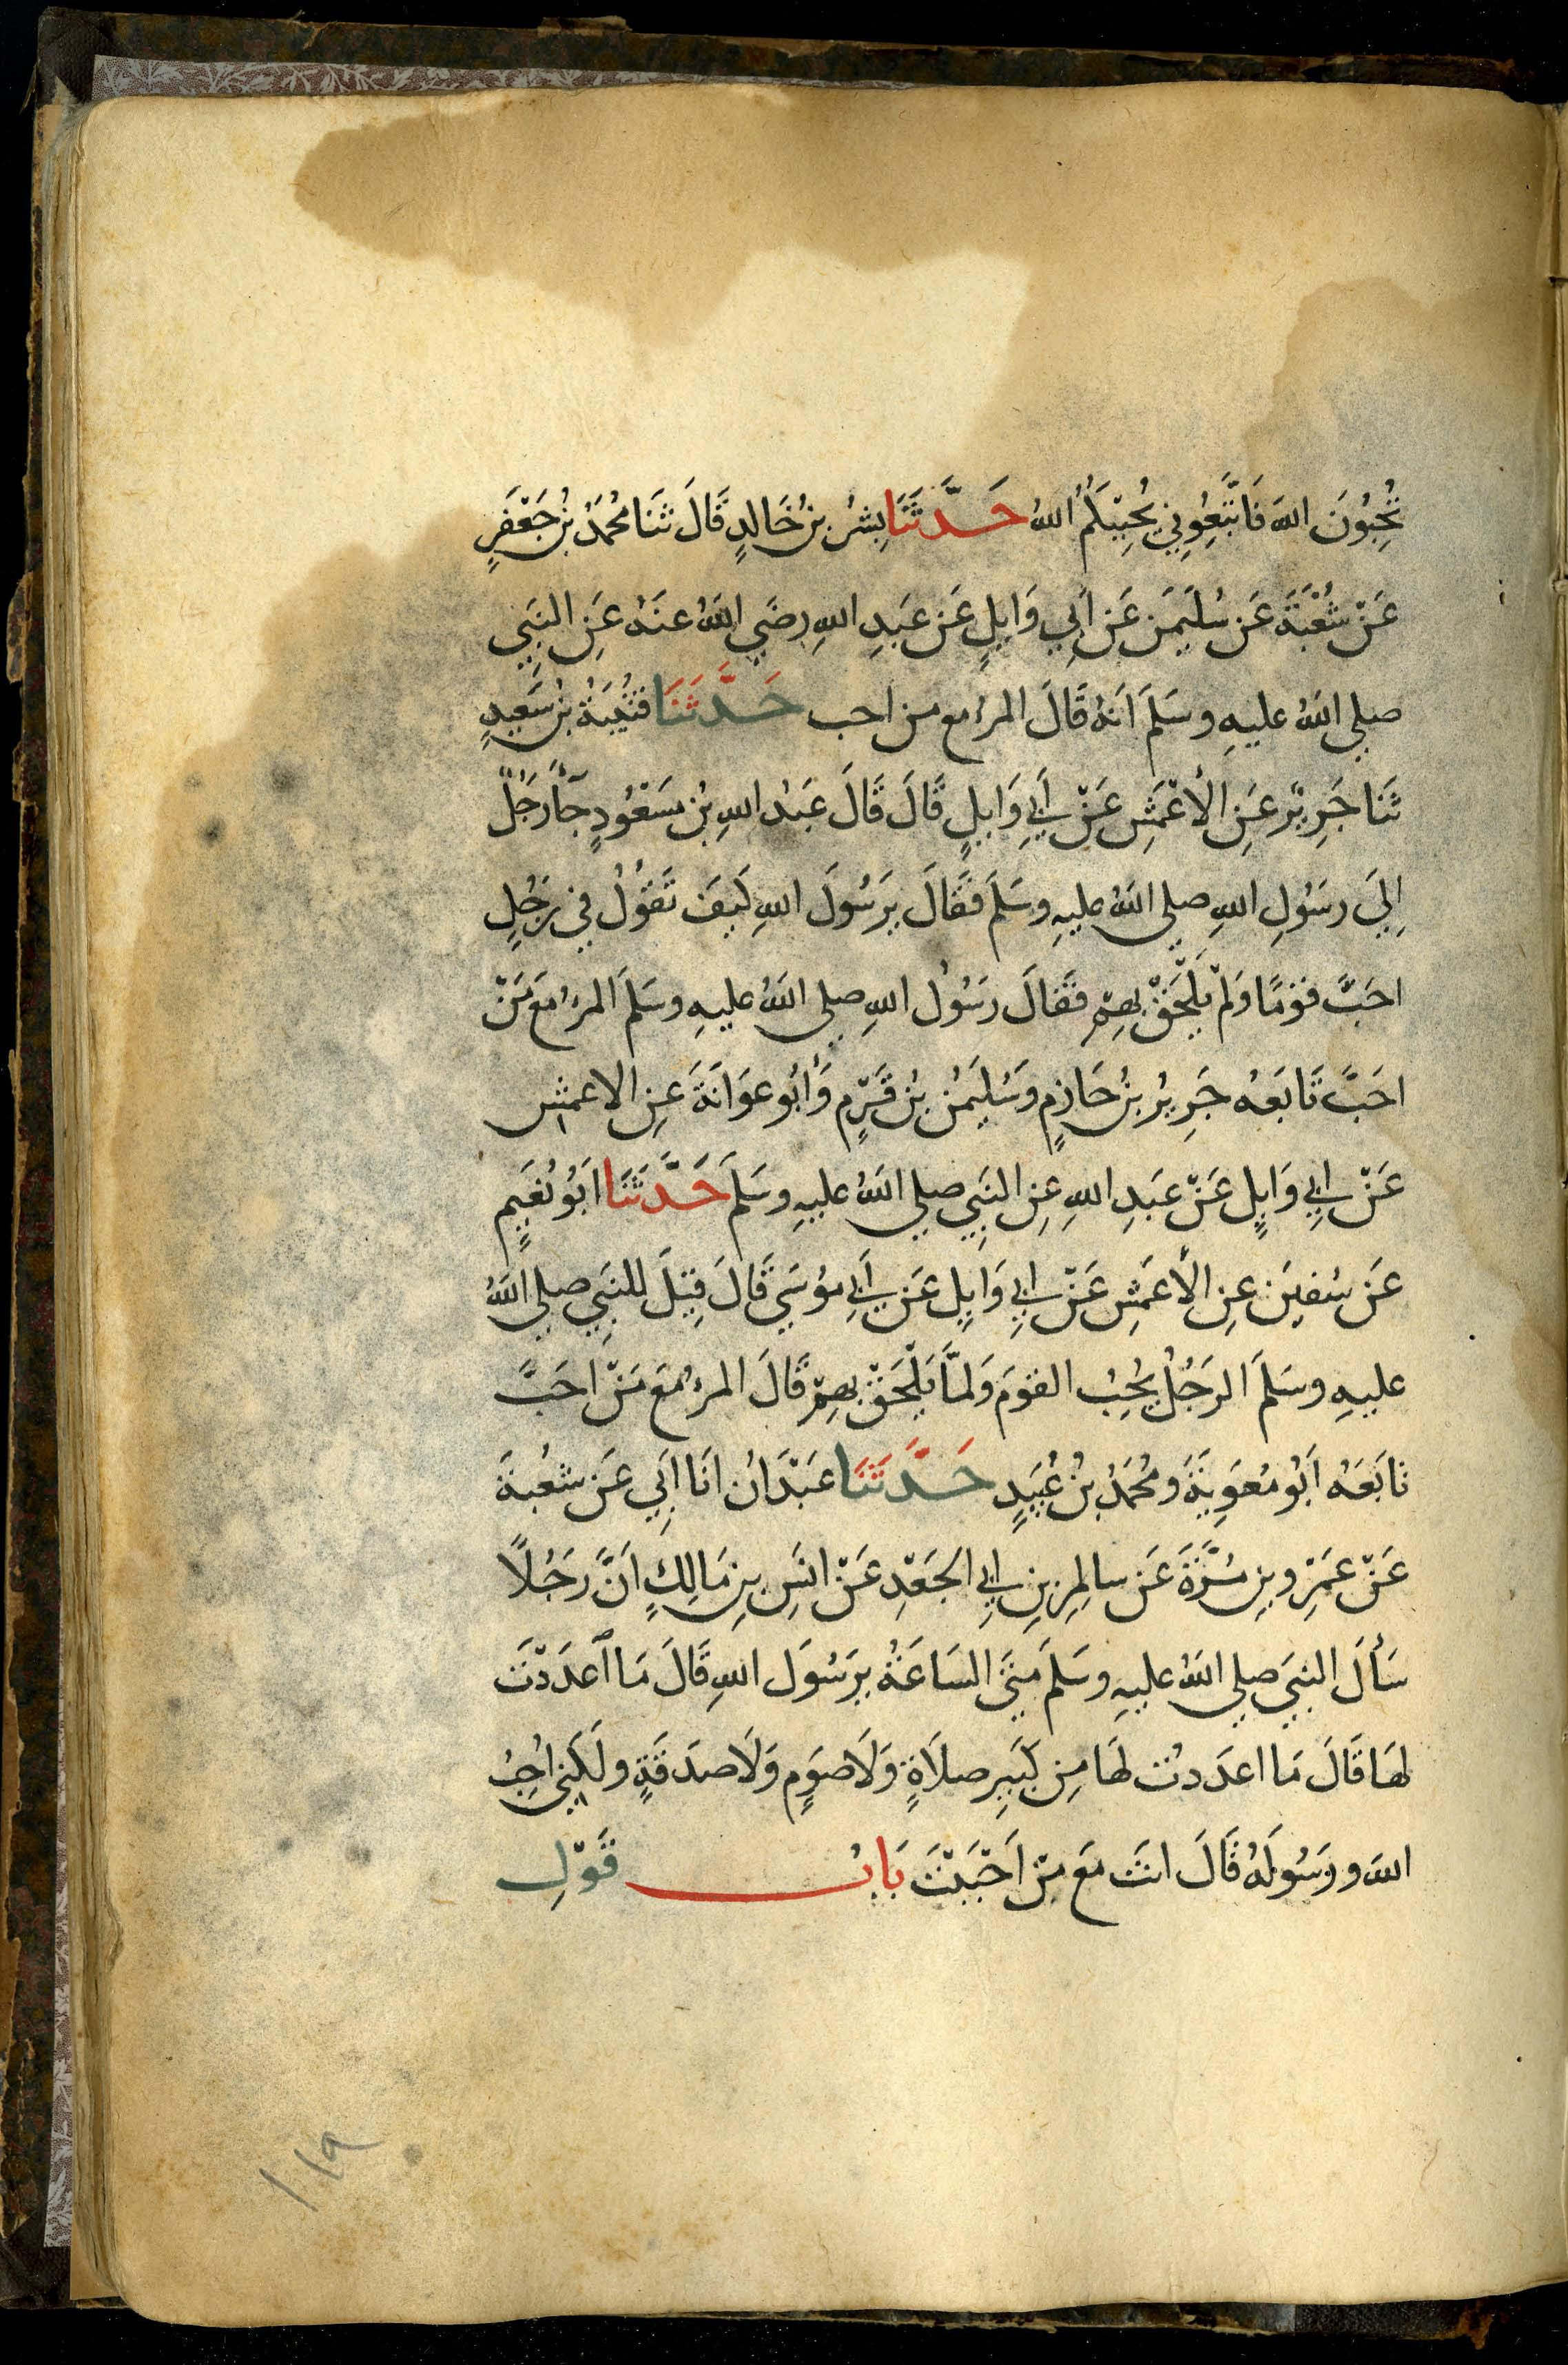 تُحِبُّونَ اللهَ فَاتَّبِعُونِي يُحْبِبْكُمُ اللهُ حَدَّثَنَا بِشْرُ بنُ خَالدٍ قَالَ ثَنَا مُحَمَّدُ بنُ جَعْفَرٍ
عَنْ شُعْبَةَ عَن سُلَيمَن عَن اَبِي وَايِلٍ عَن عَبدِ اللهِ رضَي اللهُ عنهُ عَنِ النبَيِ
صلي اللهُ عليهِ وسَلمَ اَنهُ قَالَ المرءُ مع من احب حَدَّثَنَا قتَيْبَةُ بنُ سَعِيدٍ
ثَنَا جَرِيْرٌ عَنِ الأَعْمَشِ عَنْ اَبِي وَايِلٍ قَالَ قَالَ عَبْدُ اللهِ بْنُ مسَعْوُدٍ جَآءَ رَجَلٌ
اِلَي رسَوُلِ اللهِ صلي اللهُ عليهِ وسَلمَ فَقَالَ يرَسُولَ اللهِ كَيفَ تَقوُلُ فِي رَجُلٍ
احَبَّ قوَمًا وَلمْ يَلْحَقْ بهِمْ فقَالَ رسَوُل اللهِ صلي اللهُ عليهِ وسَلمَ المرءُ مَعَ مَنْ
احَبَّ تَابَعهُ جَرِيرُ بنُ حَازِمٍ وَسُليَمنُ بنُ قَرْمٍ وَأَبُو عوَانَةَ عَنِ الاعمش
عَنْ ابِي وَايِلٍ عَنْ عبَدِ اللهِ عِنِ النبَيِ صلي اللهُ عليهِ وسَلمَ حَدَّثَنَا اَبُو نُعَيمٍ
عَن سُفيَن عَنِ الأَعمَشِ عَنْ ابِي وَايِلٍ عَن اَبِي موُسَي قَالَ قِيْلَ لِلنبَيِ صلي اللهُ
عليهِ وسَلمَ الرَجُلُ يُحِبُ القوَمَ وَلمَّا يَلْحَقْ بهِمْ قَالَ المرءُ مَعَ مَنْ احَبَّ
تابَعَهُ اَبُو مُعَوِيَةَ ومُحَمدُ بنُ عُبَيدٍ حَدَّثَنَا عَبْدَانُ انَا اَبِي عَن شعْبةَ
عَنْ عَمْرِو بنِ مُرَّةَ عَن سالمِ بنِ ابِي الجَعْدِ عَنْ انَسِ بنِ مَالِكٍ اَنَّ رَجُلاً
سَألَ النبيَ صلي اللهُ عليهِ وسَلمَ متَيَ السَاعَةُ يرَسُوَل اللهِ قَالَ مَا اَعدَدْتَ
لهَا قَالَ مَا اعدَدتُ لهَا مِن كَبَيرِ صلَاةٍ وَلَا صوَمٍ وَلَا صدَقَةٍ ولَكنِي اُحِبُ
اللهَ وورسَوُلَهُ قَالَ انتَ مَعَ مَنْ اَحْبَبْتَ بَابُ قَوْلِ
١١٩